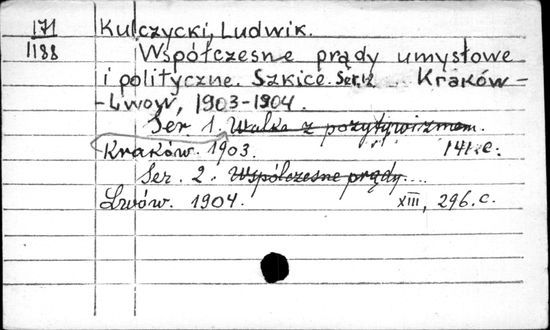 171 Kulczycki, Ludwik.
1188 Współczesne prądy umysłowe
i polityczne. Szkice. Ser. 1-2 Kraków-
-Lwow, 1903-1904.
Ser 1. Walka z pozytywizmem.
Kraków. 1903. 141 c.
Ser. 2. Współczesne prądy...
Lwów. 1904. XIII, 296. c.